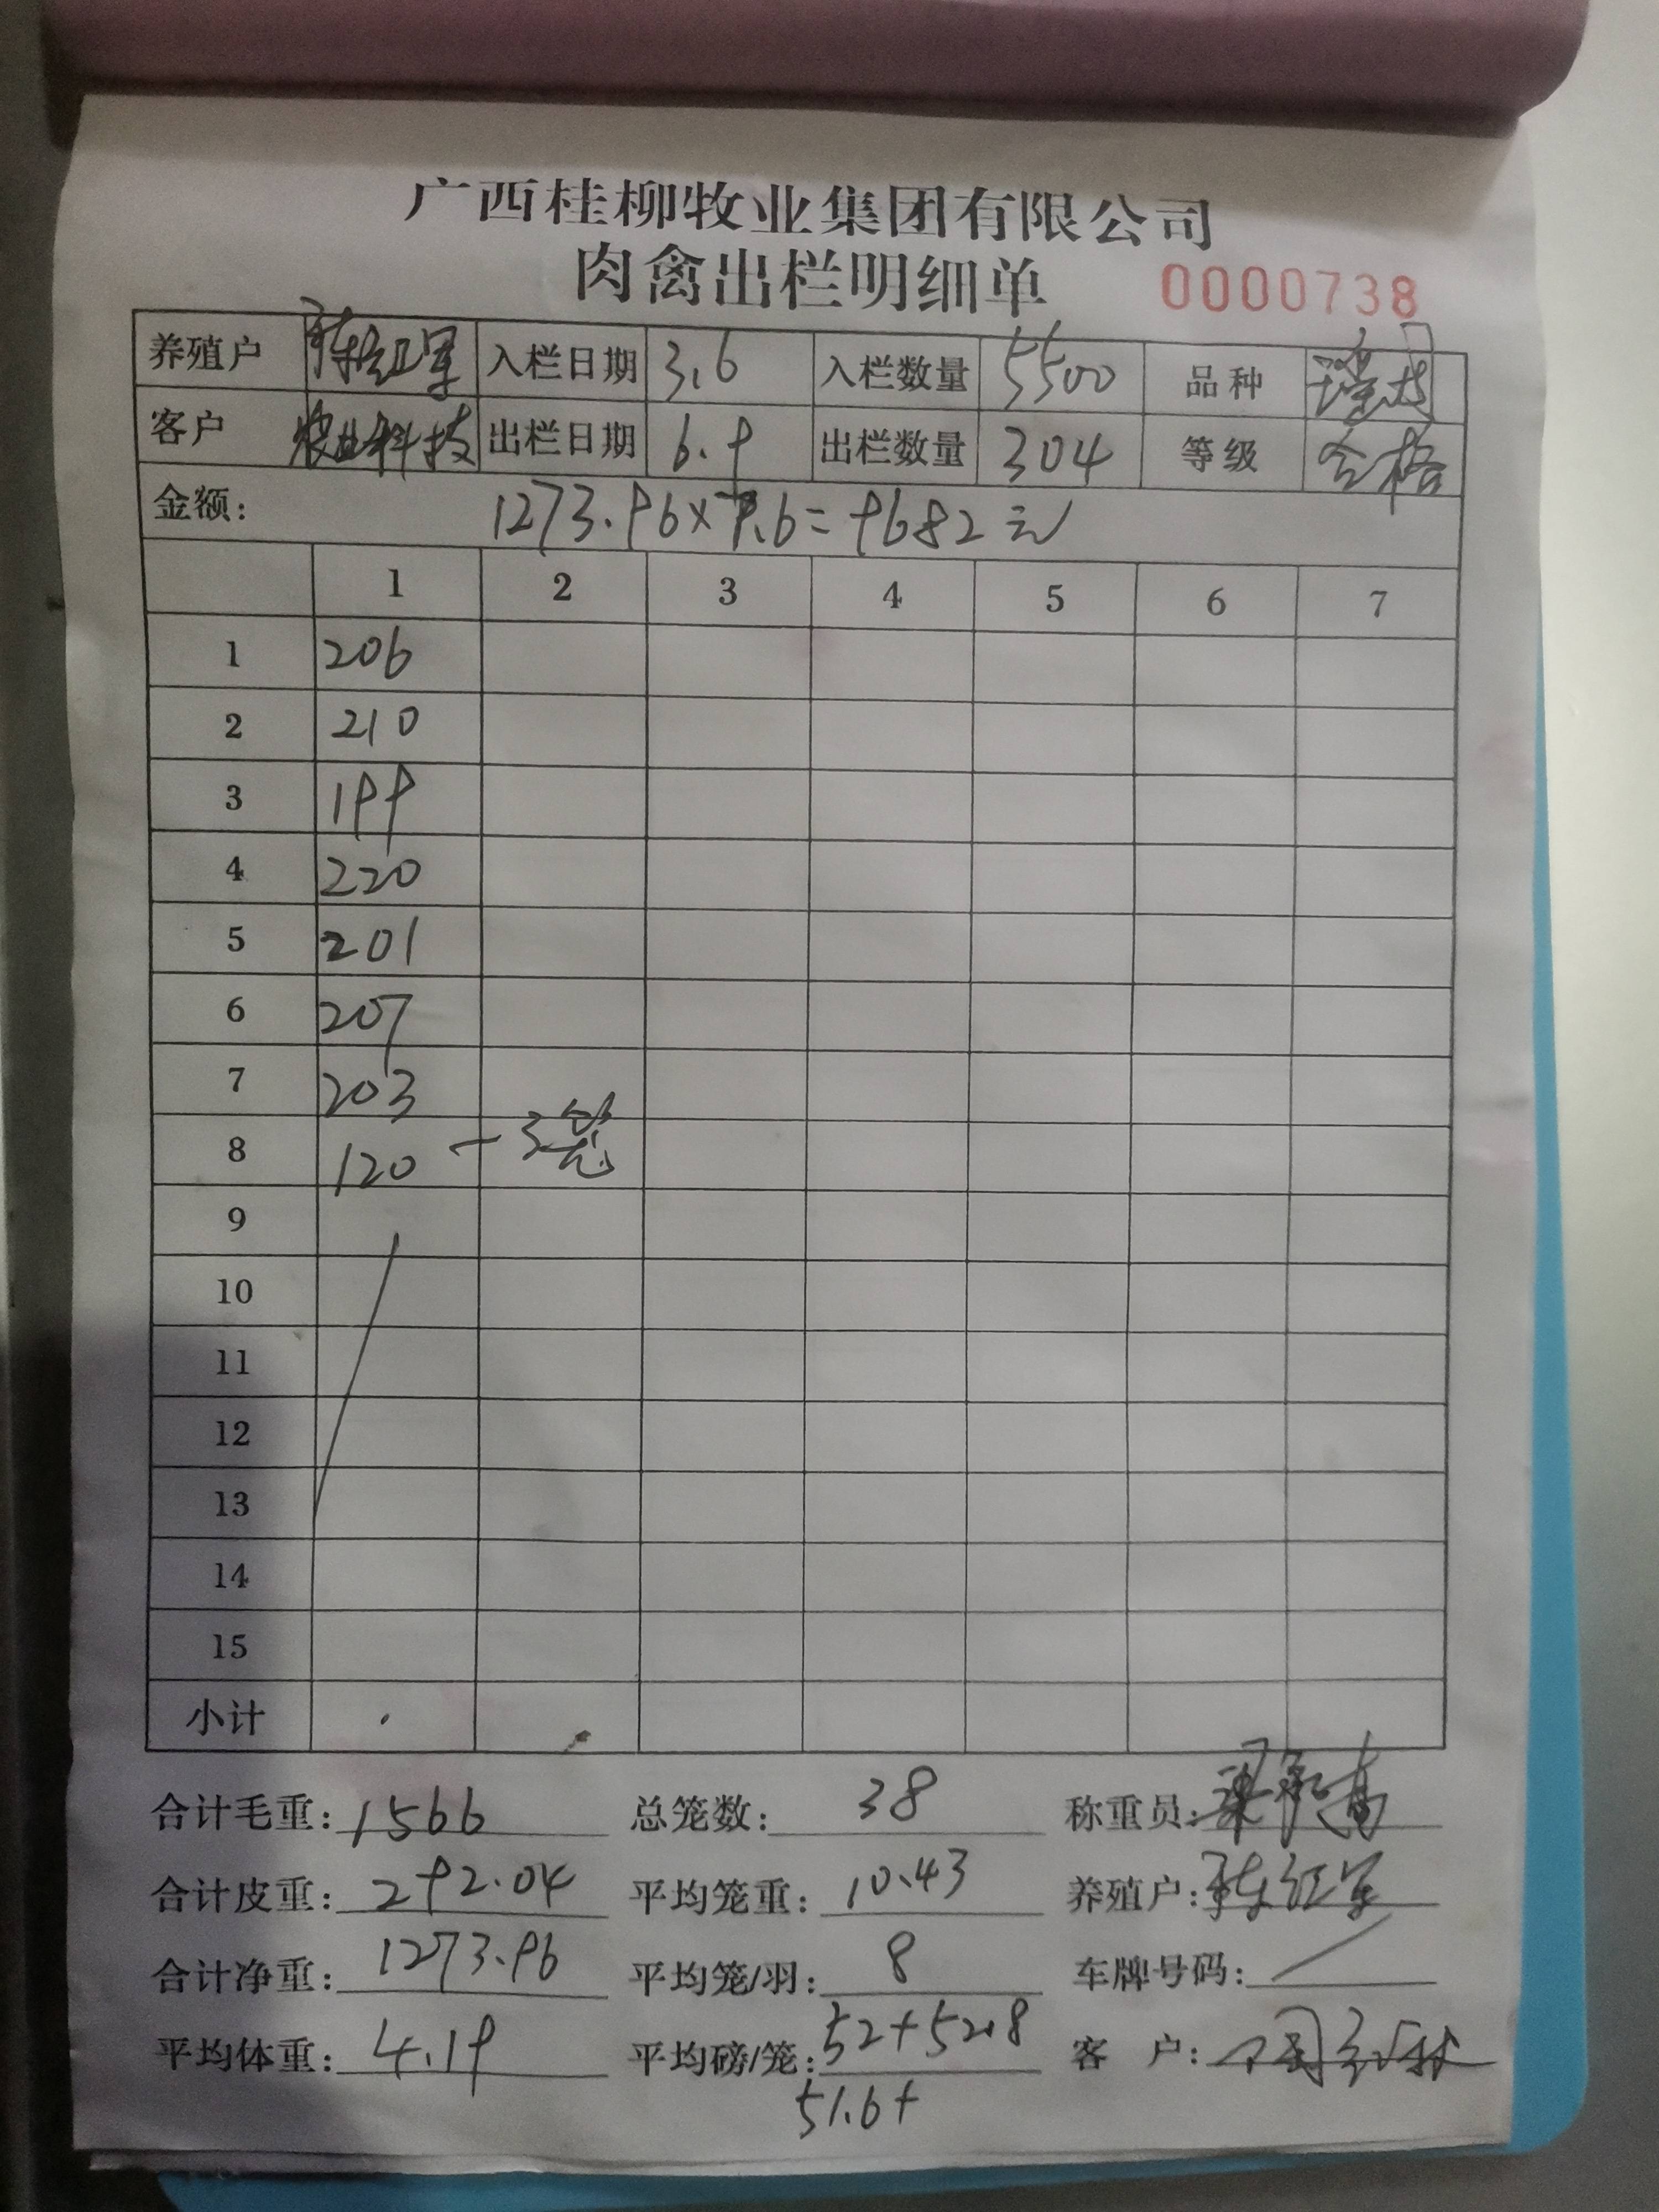 广西桂柳牧业集团有限公司
肉禽出栏明细单 0000738
养殖户 陈红军 入栏日期 3.6 入栏数量 5500 品种
客户 农业科技 出栏日期 6.9 出栏数量 304 等级 合格
金额: 1273.96×7.6=9682元
1 2 3 4 5 6 7
1 206
2 210
3 199
4 220
5 201
6 207
7 203
8 120 - 3笼
9
10
11
12
13
14
15
小计
合计毛重: 1566 总笼数: 38 称重员:
合计皮重: 292.04 平均笼重: 10.43 养殖户: 陈红军
合计净重: 1273.96 平均笼/羽: 8 车牌号码: /
平均体重: 4.19 平均磅/笼: 52+52.8 客户:
51.6+